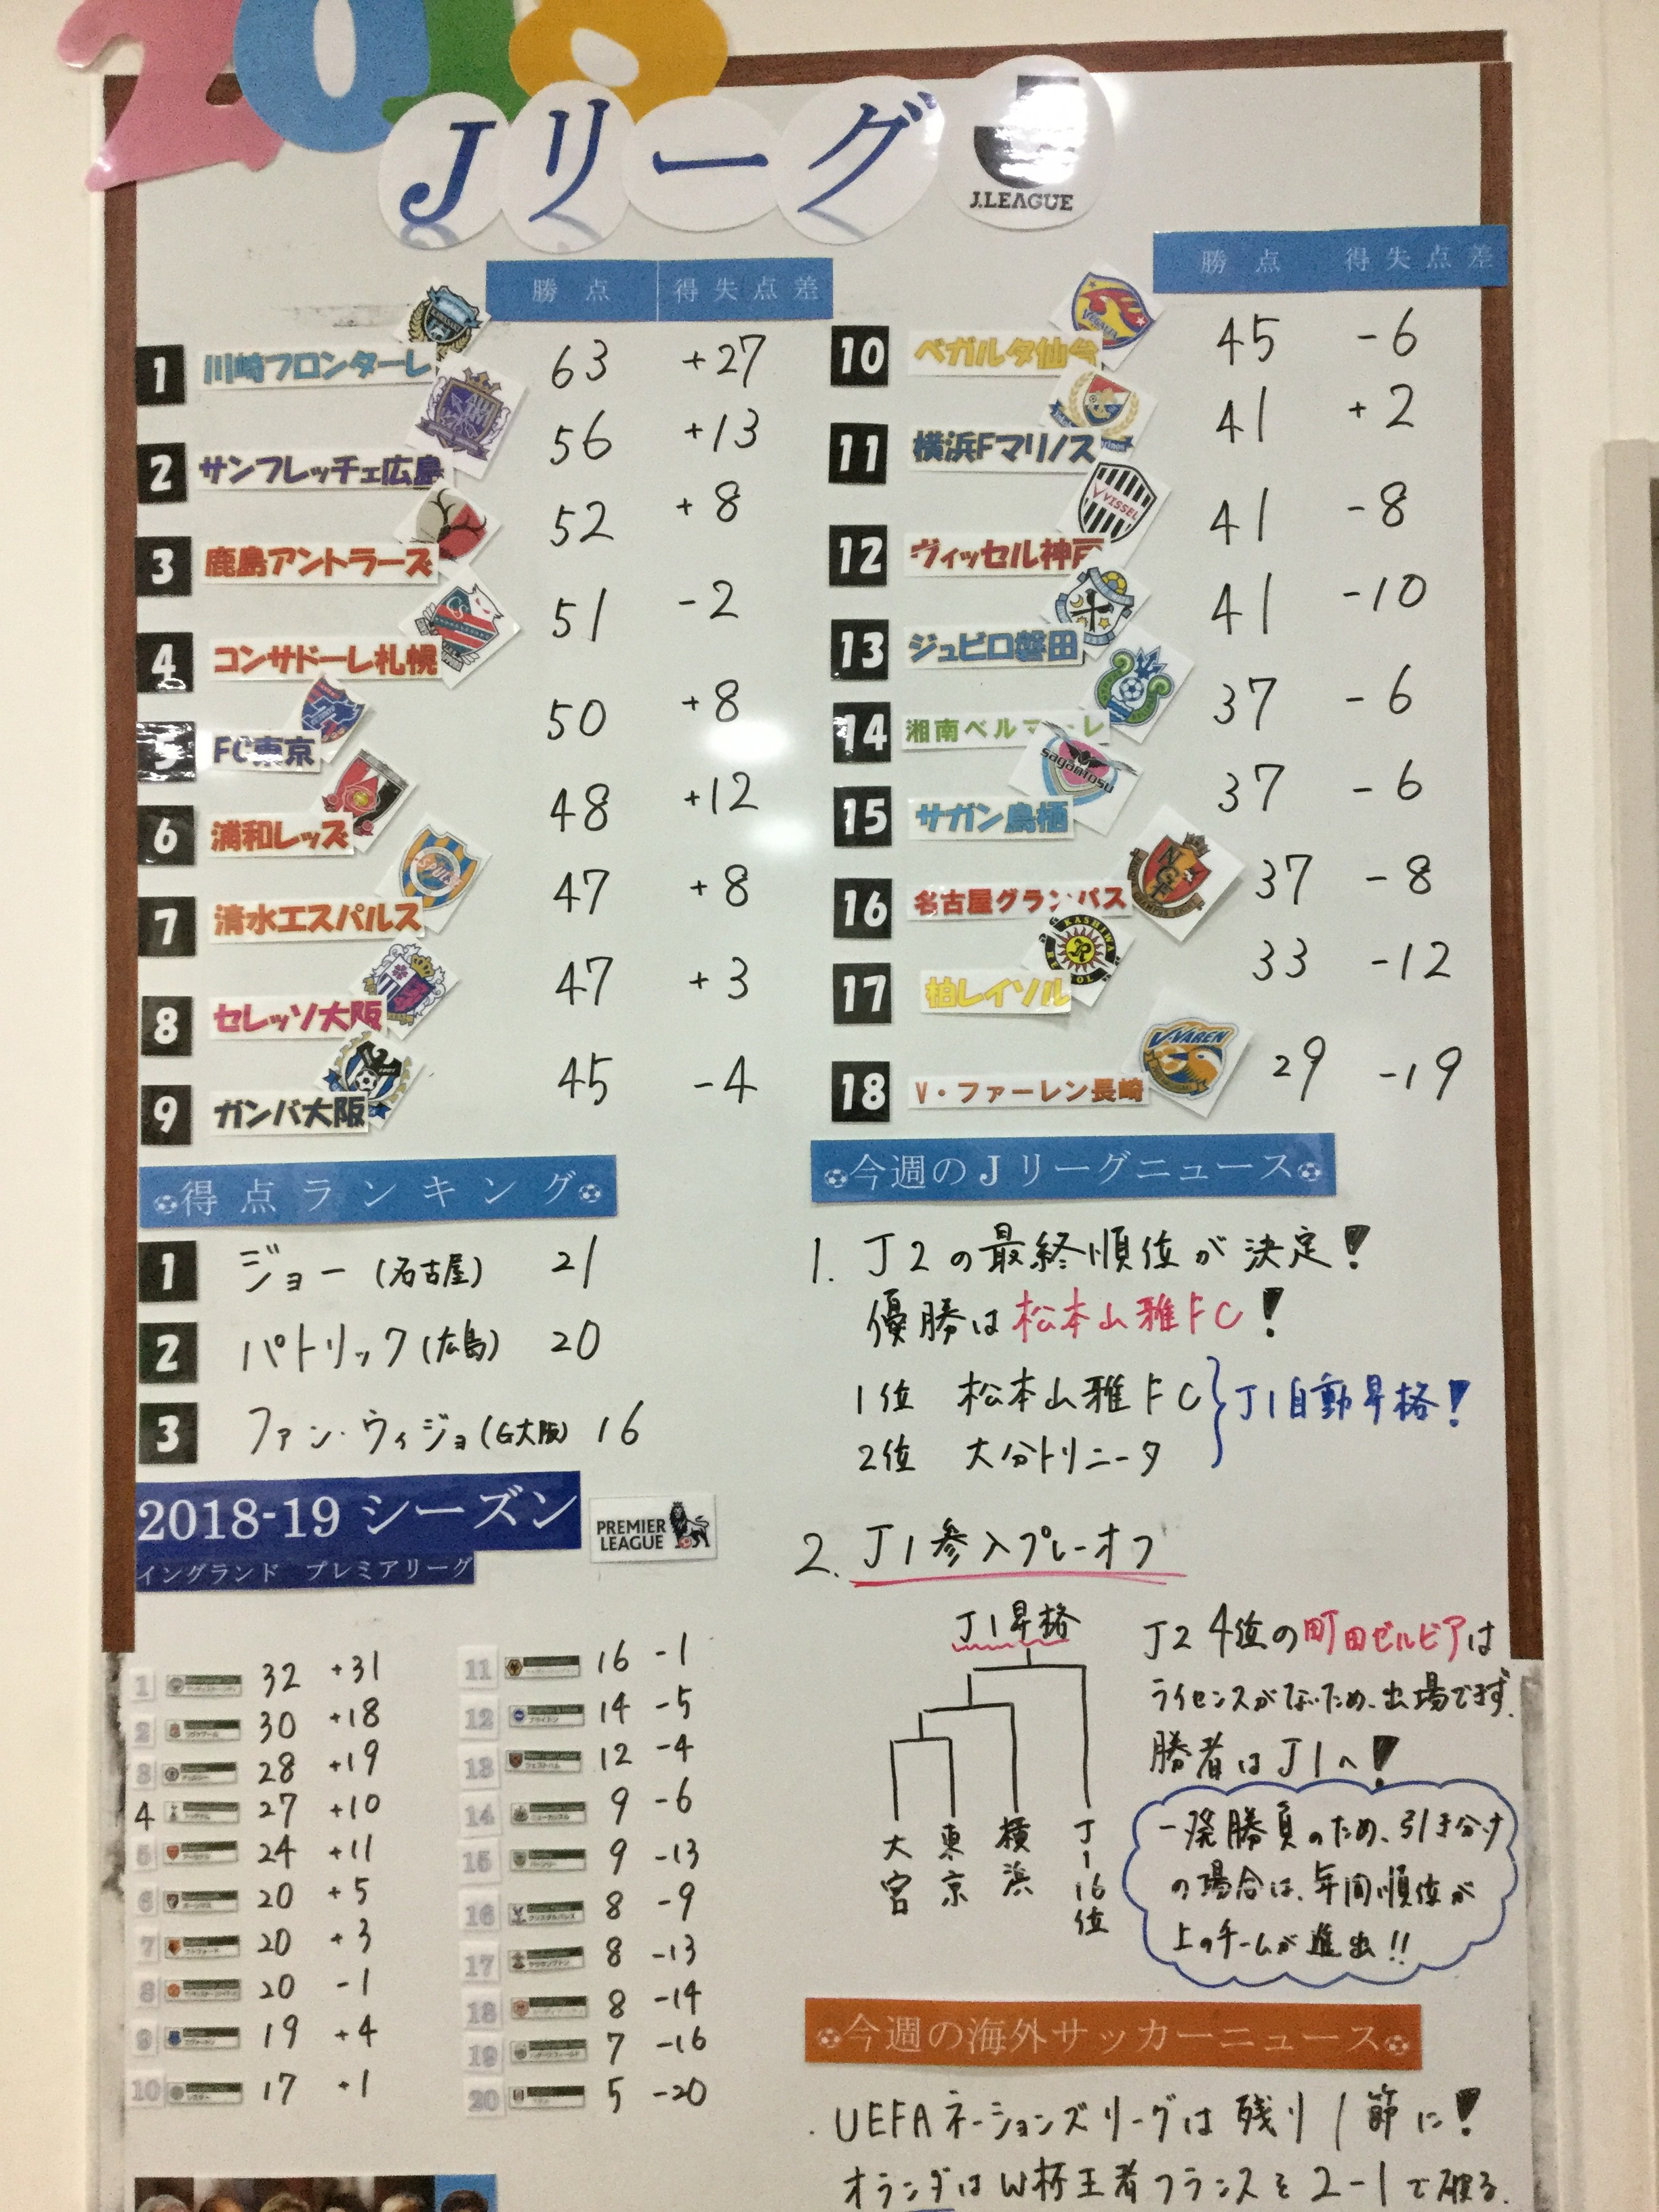 2018
Jリーグ
J.LEAGUE
勝点 得失点差
1 川崎フロンターレ 63 +27
2 サンフレッチェ広島 56 +13
3 鹿島アントラーズ 52 +8
4 コンサドーレ札幌 51 -2
5 FC東京 50 +8
6 浦和レッズ 48 +12
7 清水エスパルス 47 +8
8 セレッソ大阪 47 +3
9 ガンバ大阪 45 -4
勝点 得失点差
10 ベガルタ仙台 45 -6
11 横浜Fマリノス 41 +2
12 ヴィッセル神戸 41 -8
VISSEL
13 ジュビロ磐田 41 -10
14 湘南ベルマーレ 37 -6
15 サガン鳥栖 37 -6
sagantosu
16 名古屋グランパス 37 -8
17 柏レイソル 33 -12
KASHIWA
18 V・ファーレン長崎 29 -19
V-VAREN
得点ランキング
1 ジョー(名古屋) 21
2 パトリック(広島) 20
3 ファン・ウィジョ(G大阪) 16
2018-19 シーズン
イングランド プレミアリーグ
PREMIER
LEAGUE
1 32 +31
2 30 +18
3 28 +19
4 27 +10
5 24 +11
6 20 +5
7 20 +3
8 20 -1
9 19 +4
10 17 +1
11 16 -1
12 14 -5
13 12 -4
14 9 -6
15 9 -13
16 8 -9
17 8 -13
18 8 -14
19 7 -16
20 5 -20
今週のJリーグニュース
1. J2の最終順位が決定!
優勝は松本山雅FC!
1位 松本山雅FC
2位 大分トリニータ
J1自動昇格!
2. J1参入プレーオフ
J1昇格
大宮
東京
横浜
J1 16位
J2 4位の町田ゼルビアは
ライセンスがないため、出場できず.
勝者はJ1へ!
一発勝負のため、引き分け
の場合は、年間順位が
上のチームが進出!!
今週の海外サッカーニュース
・UEFAネーションズリーグは残り1節に!
オランダはW杯王者フランスを2-1で破る.